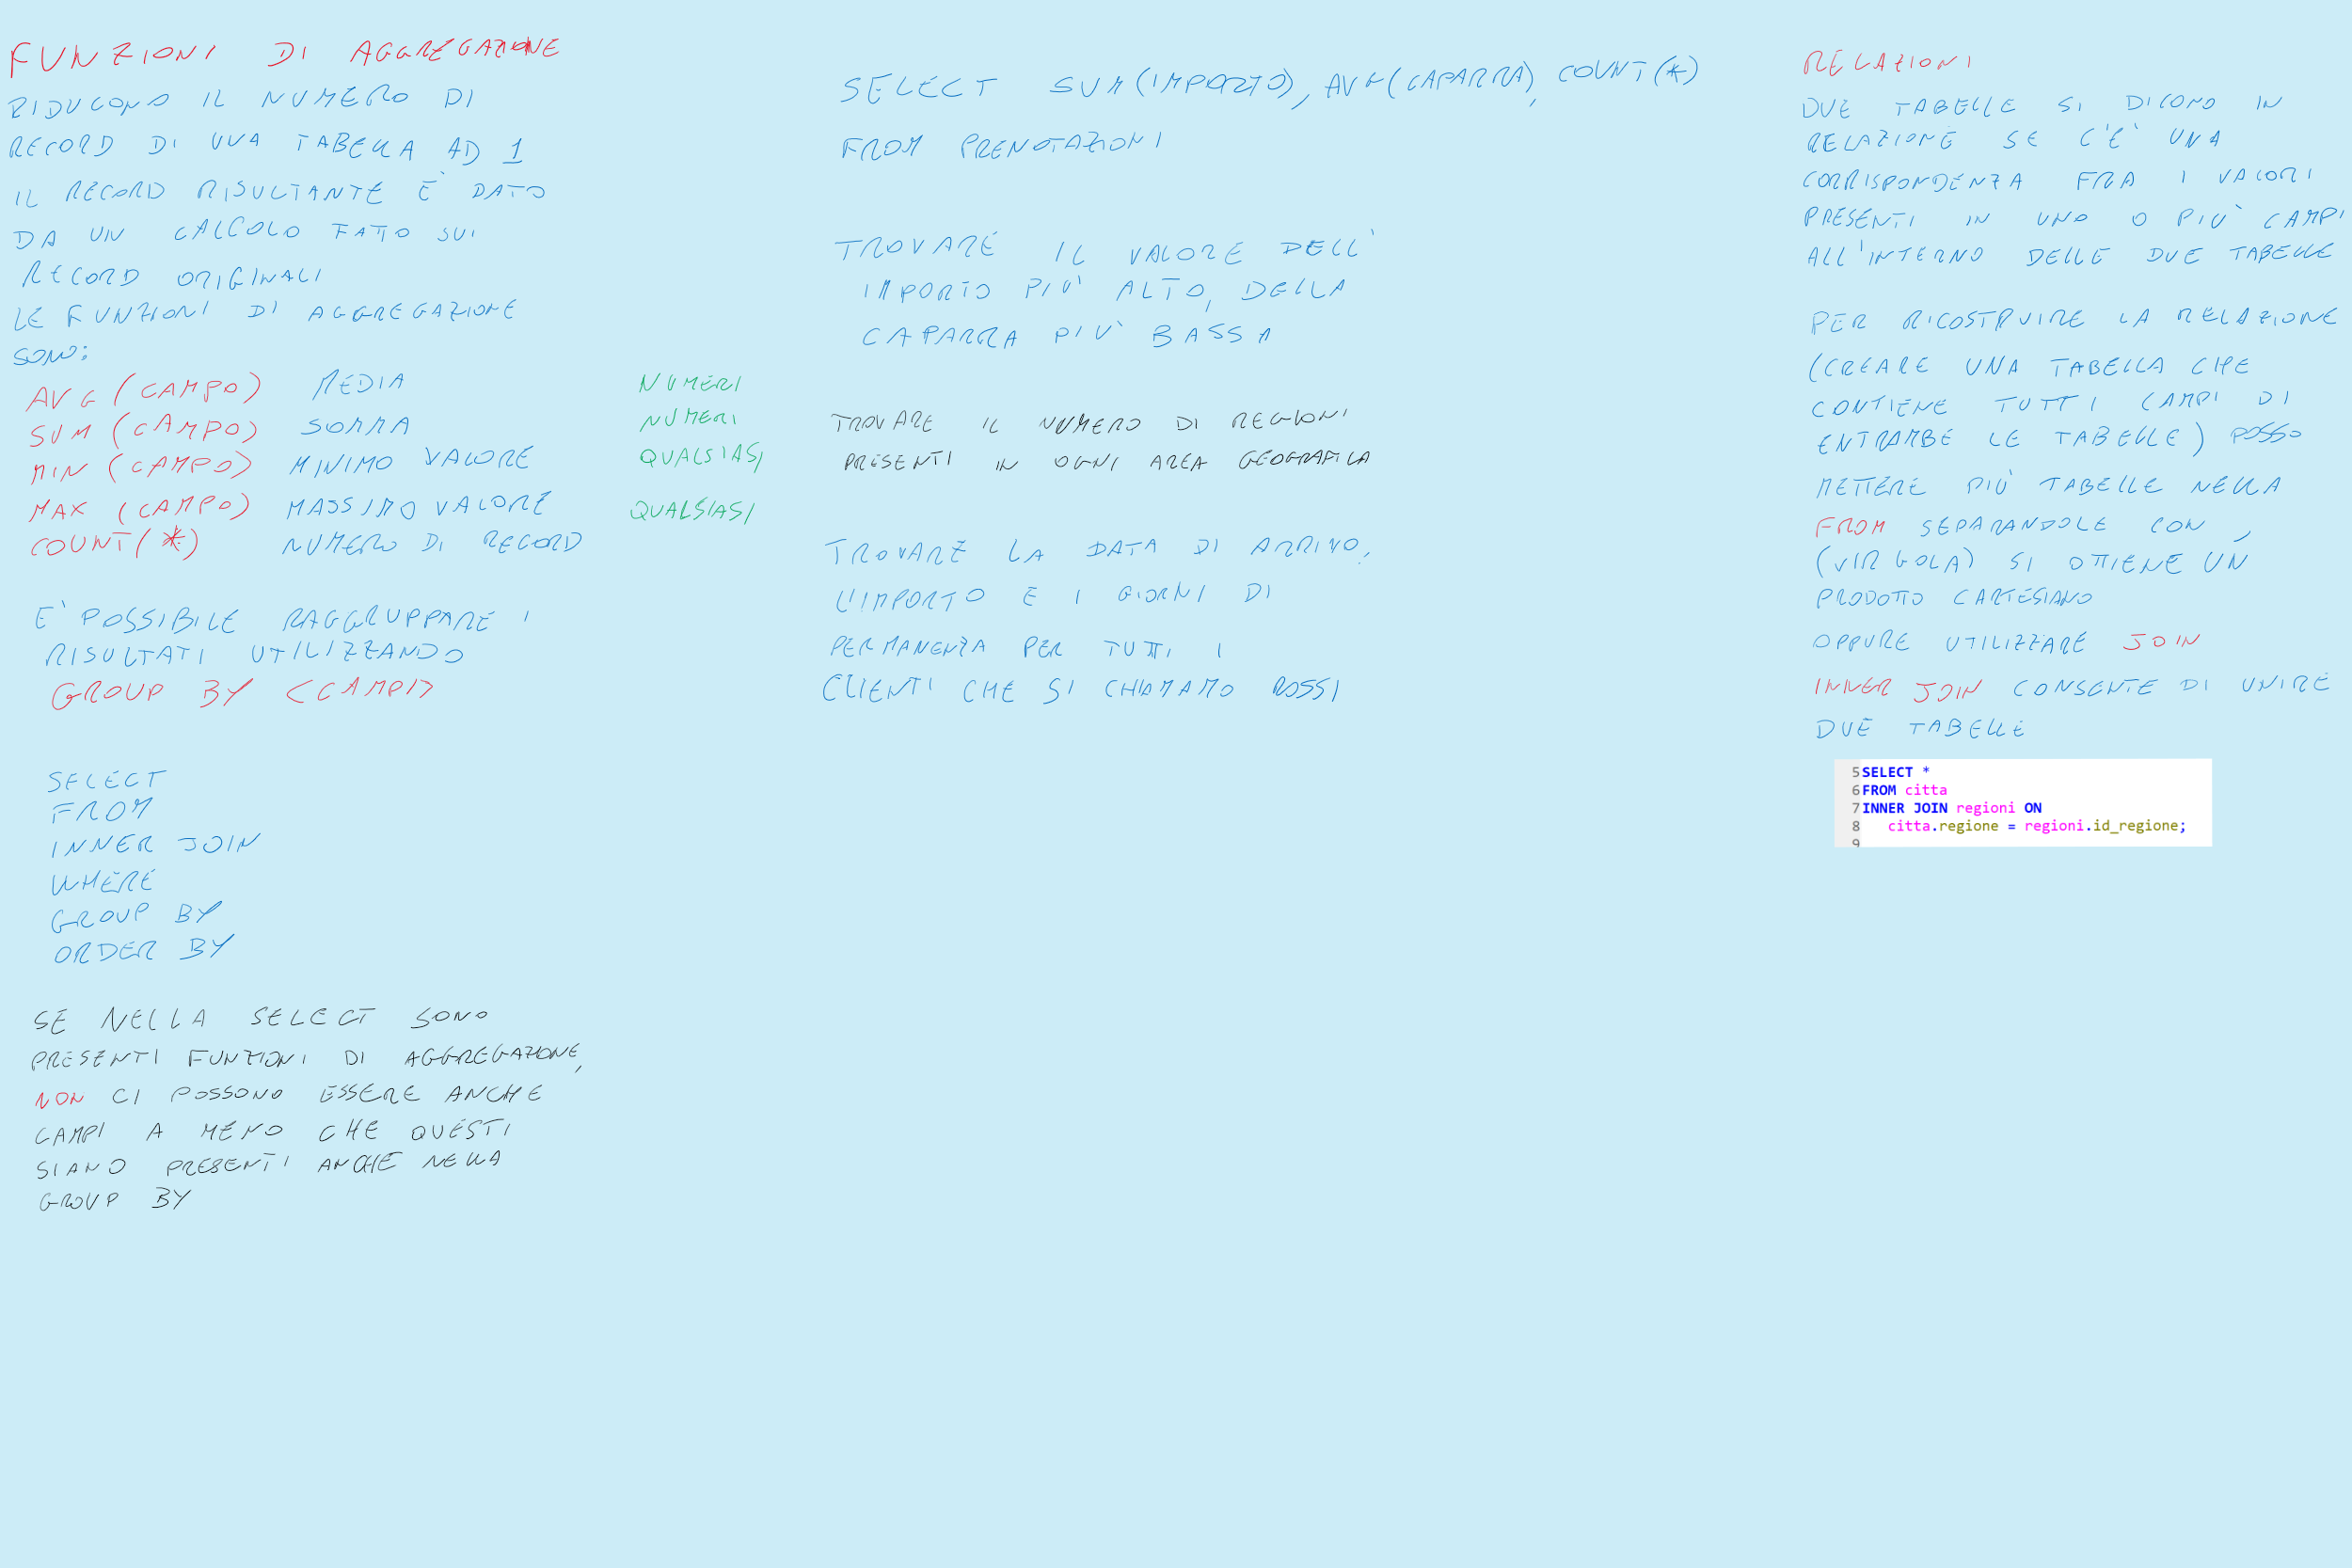 FUNZIONI DI AGGREGAZIONE
RIDUCONO IL NUMERO DI
RECORD DI UNA TABELLA AD 1
IL RECORD RISULTANTE E' DATO
DA UN CALCOLO FATTO SUI
RECORD ORIGINALI
LE FUNZIONI DI AGGREGAZIONE
SONO:
AVG (CAMPO) MEDIA NUMERI
SUM (CAMPO) SOMMA NUMERI
MIN (CAMPO) MINIMO VALORE QUALSIASI
MAX (CAMPO) MASSIMO VALORE QUALSIASI
COUNT(*) NUMERO DI RECORD
E' POSSIBILE RAGGRUPPARE I
RISULTATI UTILIZZANDO
GROUP BY <CAMPI>
SELECT
FROM
INNER JOIN
WHERE
GROUP BY
ORDER BY
SE NELLA SELECT SONO
PRESENTI FUNZIONI DI AGGREGAZIONE,
NON CI POSSONO ESSERE ANCHE
CAMPI A MENO CHE QUESTI
SIANO PRESENTI ANCHE NELLA
GROUP BY
SELECT SUM(IMPORTO), AVG(CAPARRA), COUNT(*)
FROM PRENOTAZIONI
TROVARE IL VALORE DELL'
IMPORTO PIU' ALTO, DELLA
CAPARRA PIU' BASSA
TROVARE IL NUMERO DI REGIONI
PRESENTI IN OGNI AREA GEOGRAFICA
TROVARE LA DATA DI ARRIVO,
L'IMPORTO E I GIORNI DI
PERMANENZA PER TUTTI I
CLIENTI CHE SI CHIAMANO ROSSI
RELAZIONI
DUE TABELLE SI DICONO IN
RELAZIONE SE C'E' UNA
CORRISPONDENZA FRA I VALORI
PRESENTI IN UNO O PIU' CAMPI
ALL'INTERNO DELLE DUE TABELLE
PER RICOSTRUIRE LA RELAZIONE
(CREARE UNA TABELLA CHE
CONTIENE TUTTI I CAMPI DI
ENTRAMBE LE TABELLE) POSSO
METTERE PIU' TABELLE NELLA
FROM SEPARANDOLE CON ,
(VIRGOLA) SI OTTIENE UN
PRODOTTO CARTESIANO
OPPURE UTILIZZARE JOIN
INNER JOIN CONSENTE DI UNIRE
DUE TABELLE
5 SELECT *
6 FROM citta
7 INNER JOIN regioni ON
8 citta.regione = regioni.id_regione;
9